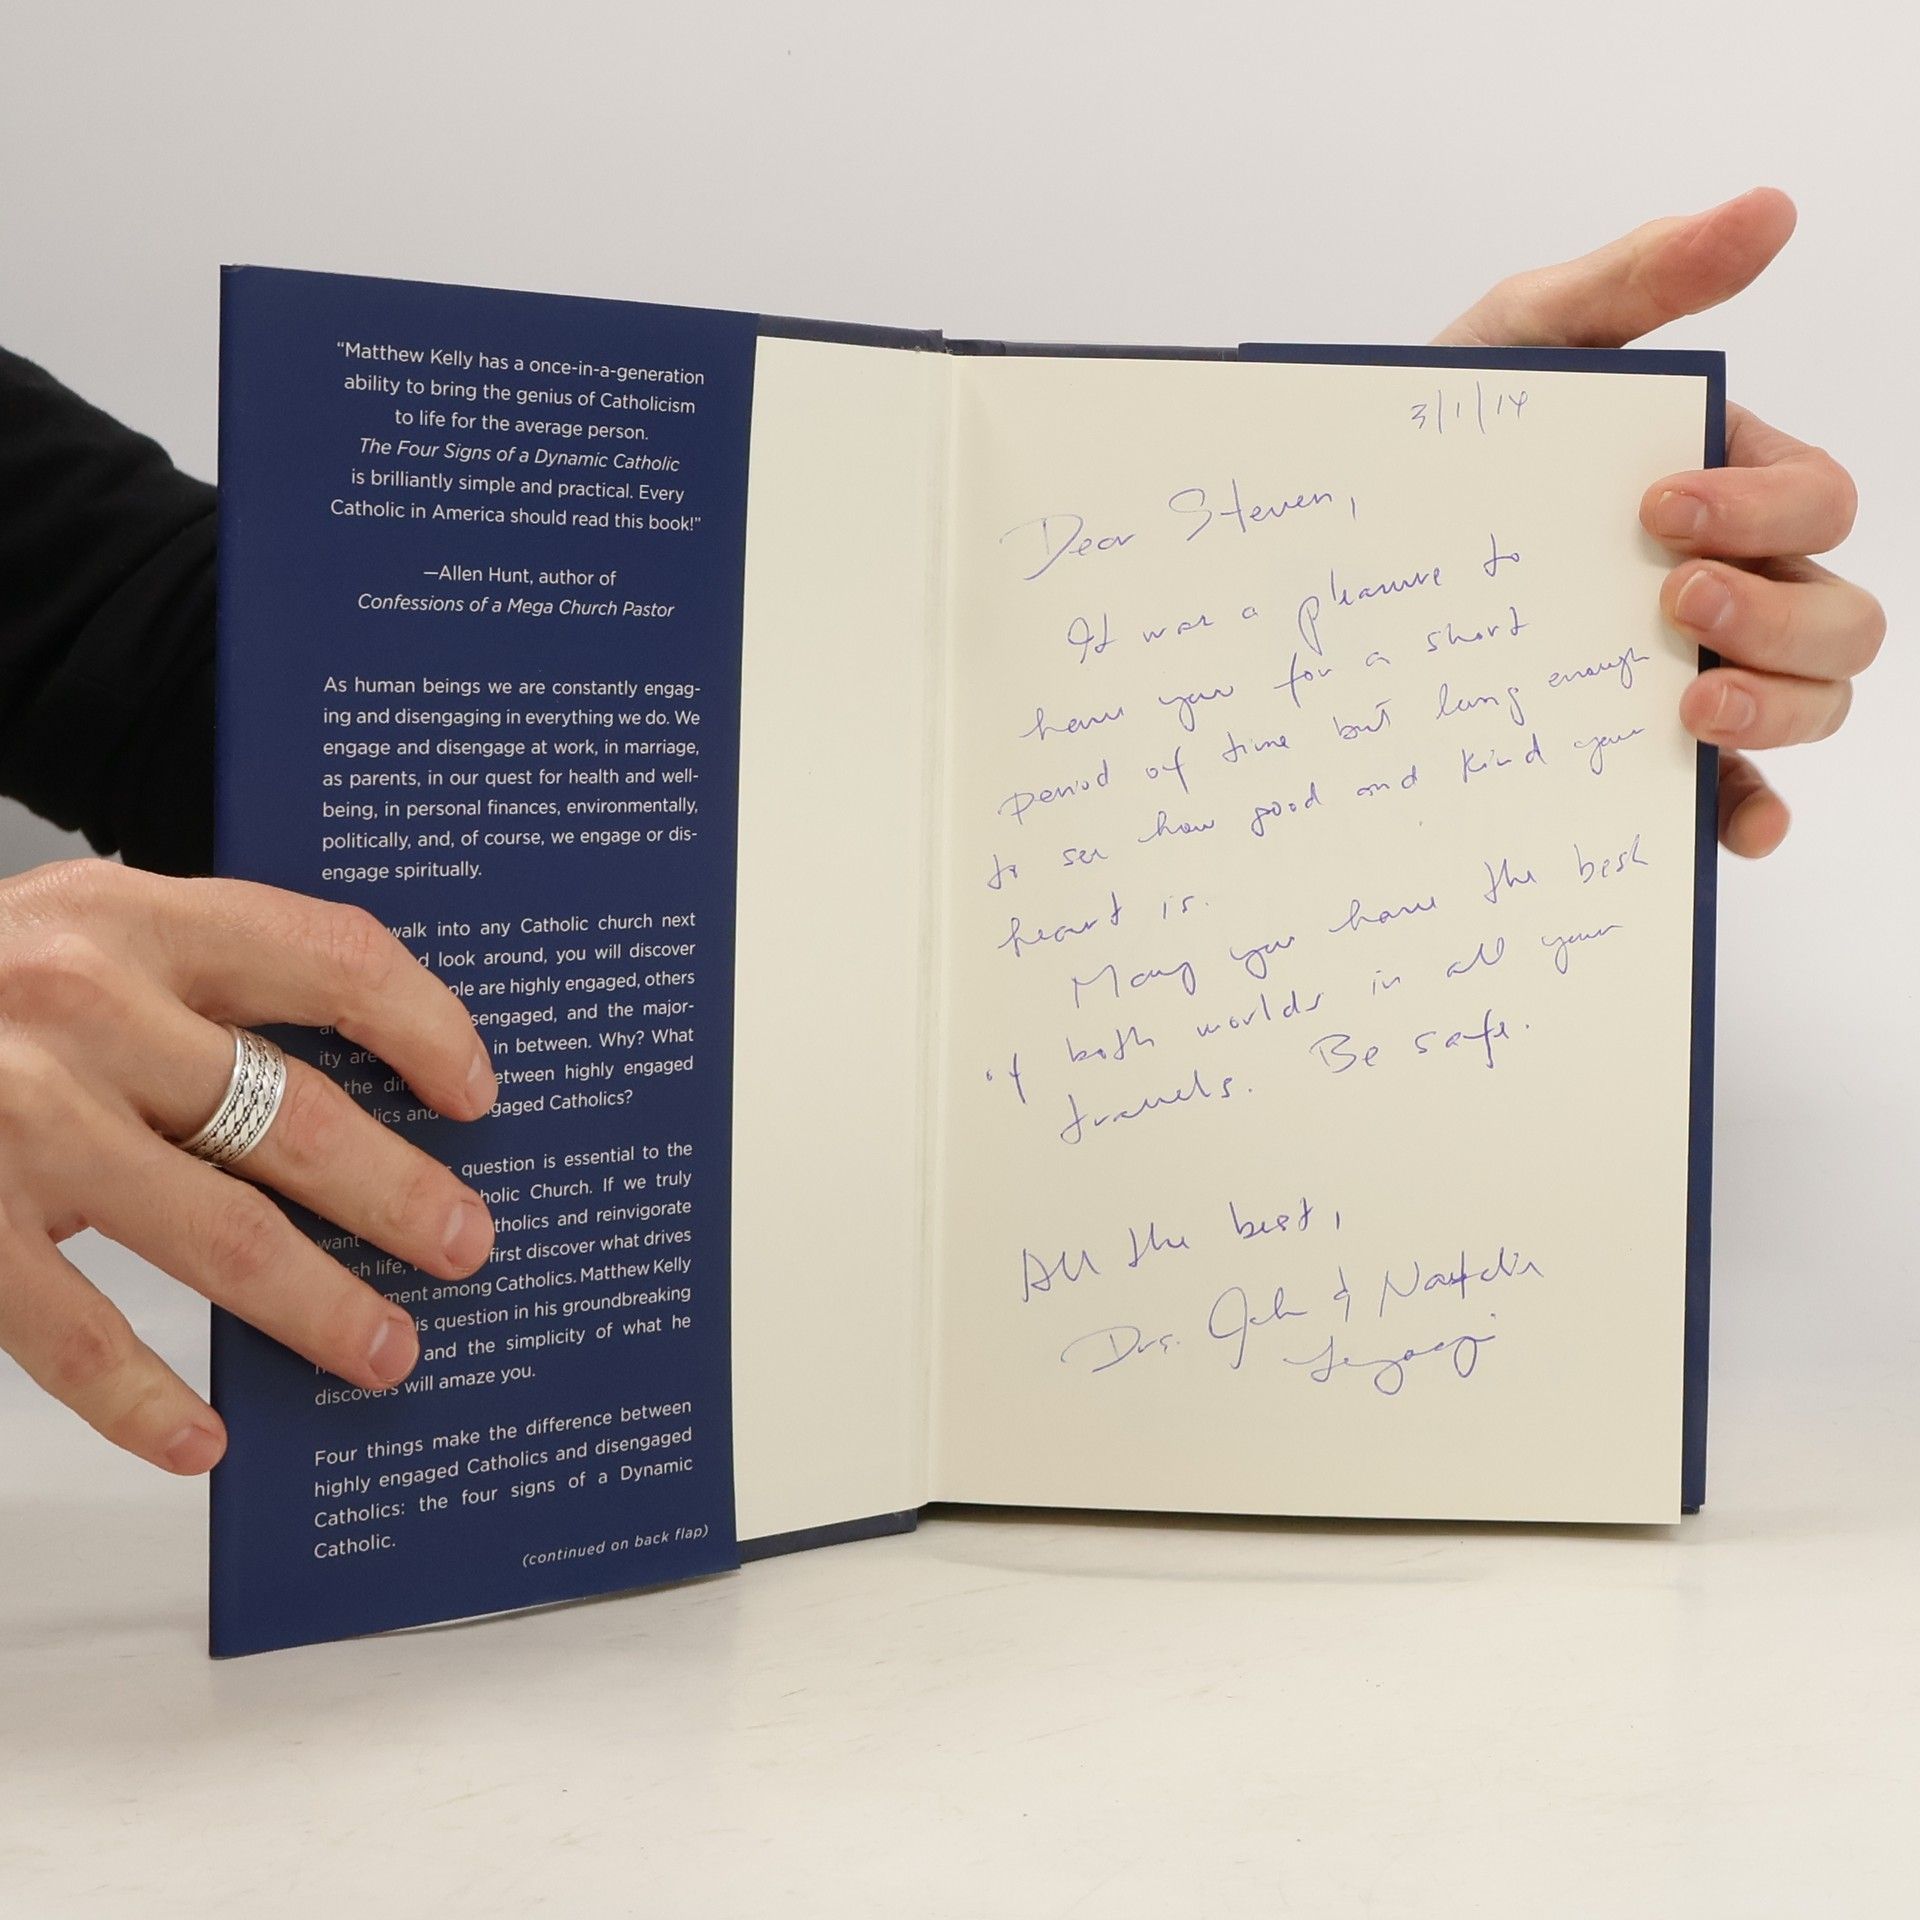 “Matthew Kelly has a once-in-a-generation
ability to bring the genius of Catholicism
to life for the average person.
The Four Signs of a Dynamic Catholic
is brilliantly simple and practical. Every
Catholic in America should read this book!”
—Allen Hunt, author of
Confessions of a Mega Church Pastor
As human beings we are constantly engag-
ing and disengaging in everything we do. We
engage and disengage at work, in marriage,
as parents, in our quest for health and well-
being, in personal finances, environmentally,
politically, and, of course, we engage or dis-
engage spiritually.
walk into any Catholic church next
look around, you will discover
are highly engaged, others
and the major-
ity are in between. Why? What
the between highly engaged
and Catholics?
question is essential to the
Church. If we truly
want and reinvigorate
life, first discover what drives
among Catholics. Matthew Kelly
question in his groundbreaking
and the simplicity of what he
discovers will amaze you.
Four things make the difference between
highly engaged Catholics and disengaged
Catholics: the four signs of a Dynamic
Catholic.
(continued on back flap)
3/1/14
Dear Steven,
It was a pleasure to
have you for a short
period of time but long enough
to see how good and kind your
heart is.
May you have the best
of both worlds in all your
travels. Be safe.
All the best,
Drs. John & Natalia